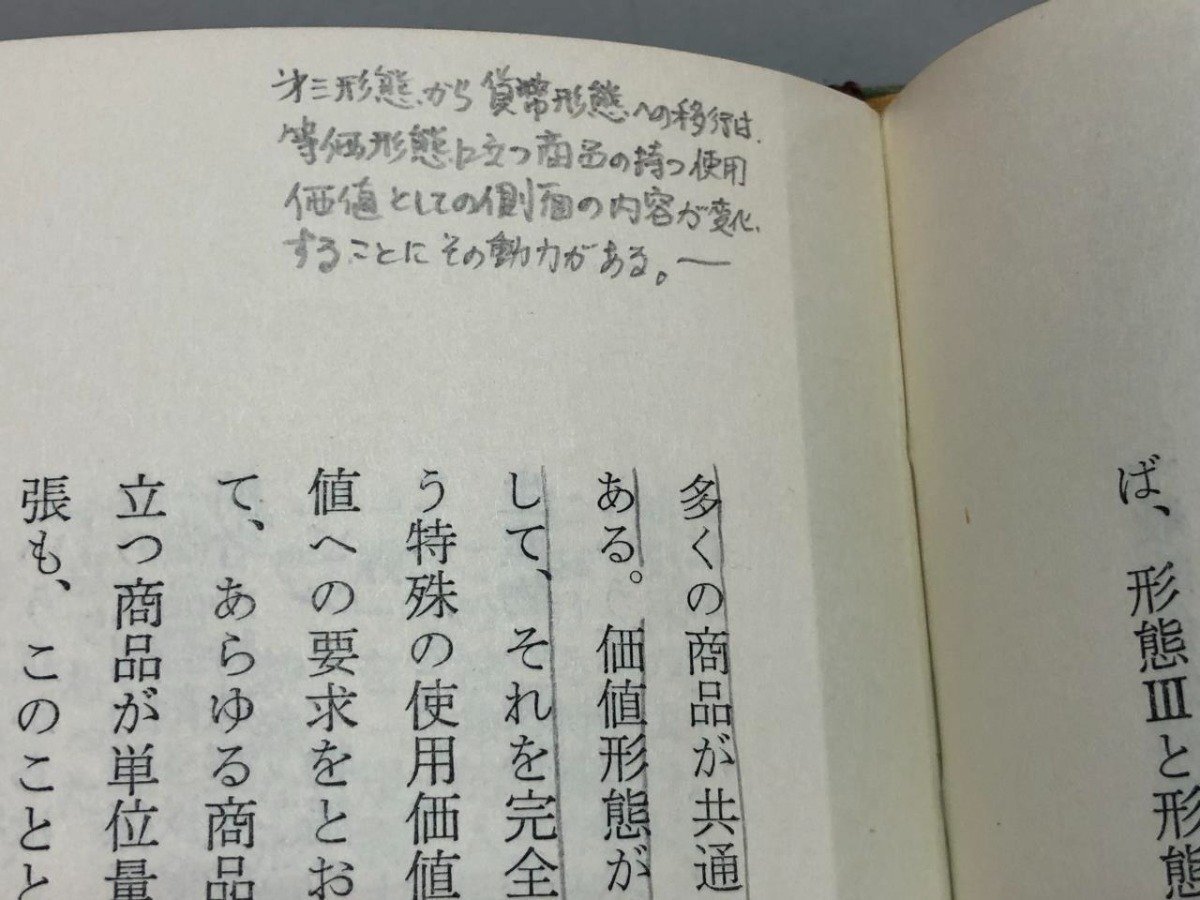 才三形態から貨幣形態への移行は、
等価形態に立つ商品の持つ使用
価値としての側面の内容が変化
することにその動力がある。―
ば、形態Ⅲと形態
多くの商品が共通
ある。価値形態が
して、それを完全
う特殊の使用価値
値への要求をとお
て、あらゆる商品
立つ商品が単位量
張も、このことと